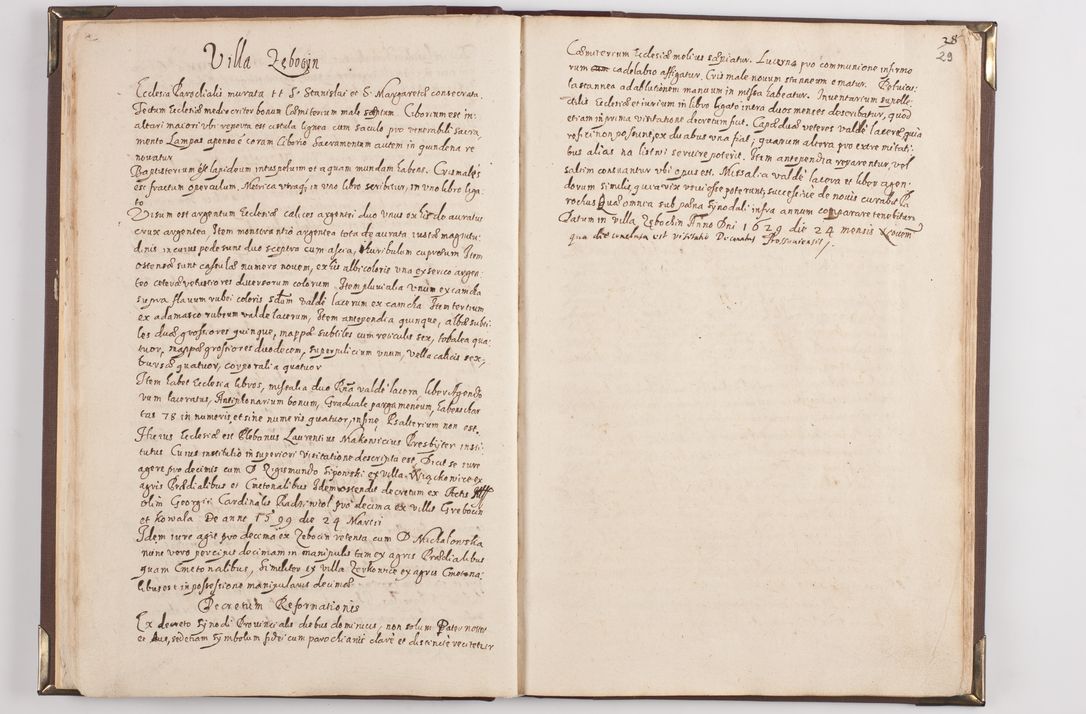 Villa Zębocin
Ecclesia Parochialis murata tt S. Stanislai et S. Margaretæ consecrata.
Tectum Ecclesiæ mediocriter bonum Cæmiterium male septum. Ciborium est in
altari maiori ubi reperta est cistula lignea cum sacculo pro venerabili Sacra
mento Lampas apensa e coram Ciborio Sacramentum autem in quindena re
novatur
Baptisterium est lapideum intus pelvim et aquam mundam habens. Crismales
est fractum operculum. Metrica utraq in uno libro scribitur, in uno libro liga
to
Visum est argentum Ecclesiæ calices argentei duo unus ex his de auratus
crux argentea Item monstrantia argentea tota de aurata iustæ magnitu
dinis in cuius pede sunt duo sceptra cum ascia, thuribulum cuprotum Item
ostensæ sunt casulæ numero novem, ex his albi coloris una ex serico argen
teo ceteræ vetustiores diversorum colorum. Item pluvialia unum ex camcha
supra flavum rubei coloris sdum valde lacerum ex camcha. Item tertium
ex adamasco rubeum valde lacerum, Item antependia quinque, albæ subti
les duæ grossiores quinque, mappæ subtiles cum reticulis sex, tobalea qua
tuor, mappæ grossiores duodecem, superpelicium unum, vella calicis sex,
bursæ quatuor, corporalia quatuor
Item habet Ecclesia libros, missalia duo Rna valde lacera, liber Agendo
rum laceratus, Antiphonarium bonum, Graduale pargameneum, habens char
tas 78 in numeris et sine numeris quatuor, in fine Psalterium non est.
Huius Ecclesiæ est Plebanus Laurentius Makowicius Presbyter insti
tutus Cuius institutio in superiori visitatione descripta est. Dicit se iure
agere pro decimis cum D Zigismundo Sipowski ex villa Więckowice ex
agris Prædialibus et Cmetonalibus Idem ostendit decretum ex Actis
olim Georgii Cardinalis Radziwiol pro decima ex villis Grebocin
et Kowala De anno 1599 die 24 Martii
Idem iure agit pro decima ex Zebocin retenta cum D Michalowska
nunc vero percipit decimam in manipulis tam ex agris Prædialibus
quam Cmetonalibus, Similiter ex villa Zerkowice ex agris Cmetona
libus est in possessione manipularis decimæ
Decretum Reformationis
Ex decreto Synodi Provincialis diebus dominicis, non solum Pater noster
et Ave, sed etiam symbolum fidei cum parochianis clare et distincte recitetur
28
29
Cæmiterium Ecclesiæ melius sæpiatur. Lucerna pro communione infirmo
rum cum cadelabro affigatur. Crismale novum stanneum ematur. Pelvicu
la stannea ad ablutionem manuum in missa habeatur. Inventarium supelle
ctilis Ecclesiæ et iurium in libro ligato intra duos menses describatur, quod
etiam in prima visitatione decretum fuit. Capæ duæ veteres valde laceræ quia
refici non possunt, ex duabus una fiat, quarum altera pro extremitati
bus alias na listwi servire poterit. Item antependia reparentur, vel
saltim consuantur ubi opus est. Missalia valde lacera et liber agen
dorum similis, quia vix usui esse poterunt, successive de novis curabit Pa
rochus Quæ omnia sub pæna Synodali infra annum comparare tenebitur
Datum in villa Zębochin Anno Dni 1629 die 24 mensis Novem
qua die conclusa est visitatio Decanatus Prossoviensis